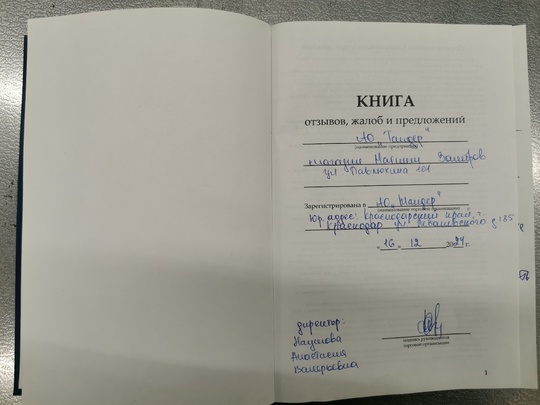 КНИГА
отзывов, жалоб и предложений
АО „Тандер"
(наименование предприятия)
магазин Магнит
ул Павлюхина 101
Зарегистрирована в АО „Тандер"
(наименование торговой организации)
Юр. адрес: Краснодарский край, г.
Краснодар ул. Леваневского д 185
„ 16 " 12 2024 г.
директор:
Наумова
Анастасия
Валерьевна
подпись руководителя
торговой организации
1